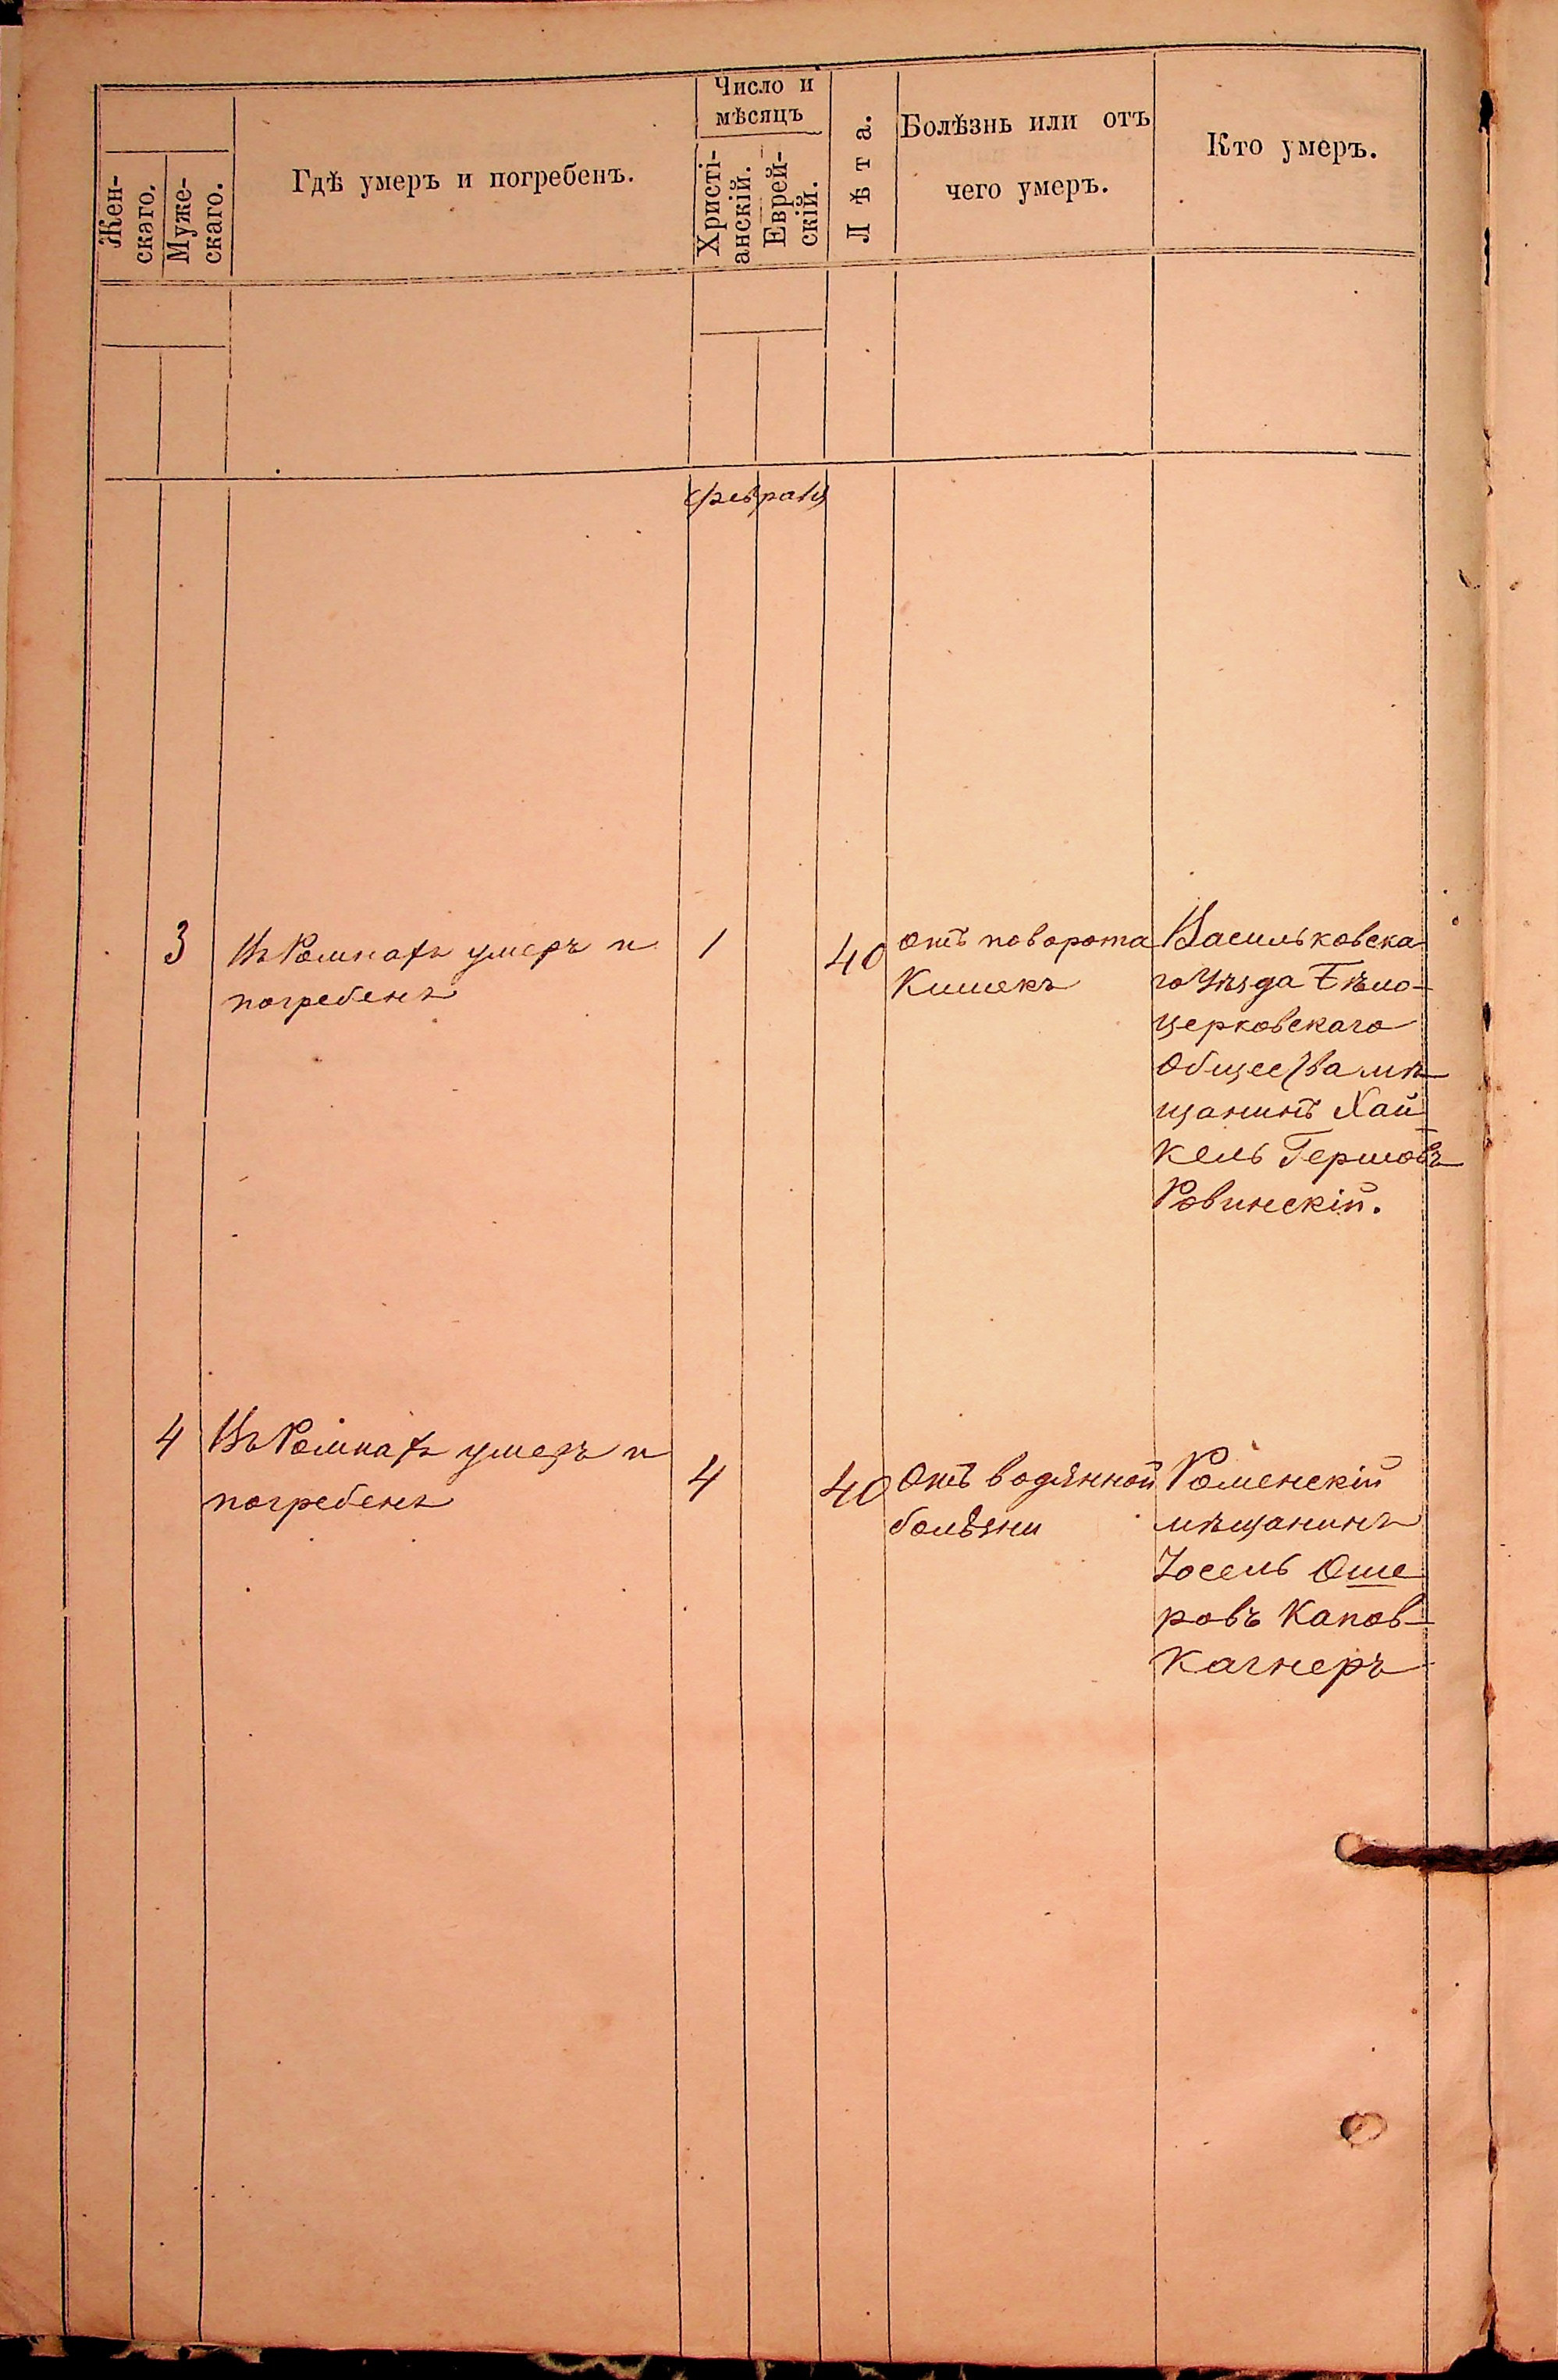 Жен-
скаго.
Муже-
скаго.
Гдѣ умеръ и погребенъ.
Число и
мѣсяцъ
Христі-
анскій.
Еврей-
скій.
Лѣта.
Болѣзнь или отъ
чего умеръ.
Кто умеръ.
февраля
3
Въ Ромнахъ умеръ и
погребенъ
1
40
отъ поворота
Кишекъ
Васильковска
го Уѣзда Бѣло-
церковскаго
Общества мѣ
щанинъ Хай
кель Гершовъ
Ровинскій.
4
Въ Ромнахъ умеръ и
погребенъ
4
40
Отъ водянной
болѣзни
Роменскій
мѣщанинъ
Іосель Оше
ровъ Капов-